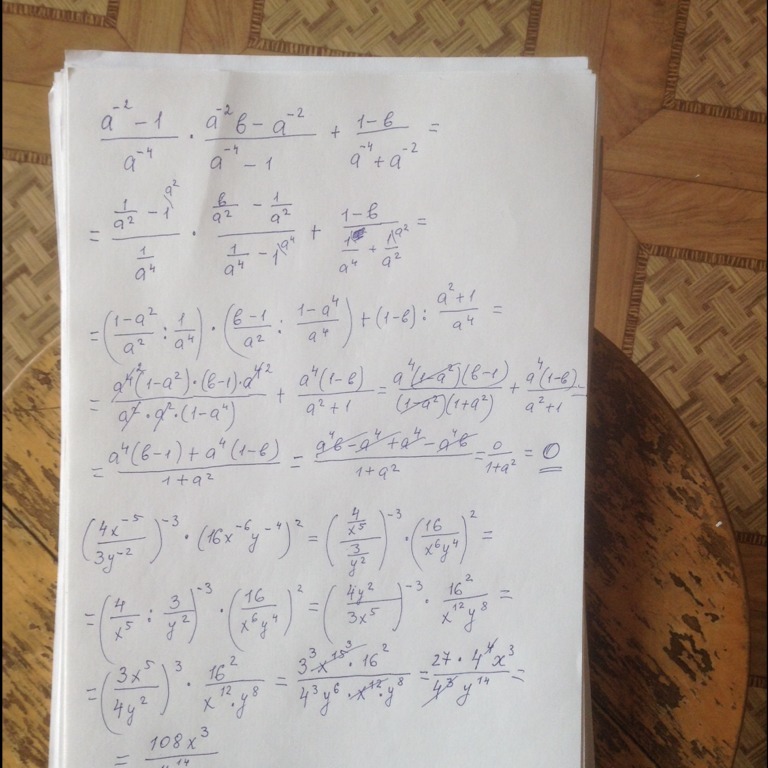 (a⁻² − 1)/a⁻⁴ · (a⁻²b − a⁻²)/(a⁻⁴ − 1) + (1−b)/(a⁻⁴ + a⁻²) =
= (1/a² − 1 \a²)/(1/a⁴) · (b/a² − 1/a²)/(1/a⁴ − 1 \a⁴) + (1−b)/(1/a⁴ + 1\a²/a²) =
= ((1−a²)/a² : 1/a⁴) · ((b−1)/a² : (1−a⁴)/a⁴) + (1−b) : (a²+1)/a⁴ =
= (a⁴ ²(1−a²)·(b−1)·a⁴ ²)/(a²·a²·(1−a⁴)) + a⁴(1−b)/(a²+1) = a⁴(1−a²)(b−1)/((1−a²)(1+a²)) + a⁴(1−b)/(a²+1) =
= (a⁴(b−1) + a⁴(1−b))/(1+a²) = (a⁴b − a⁴ + a⁴ − a⁴b)/(1+a²) = 0/(1+a²) = 0
(4x⁻⁵/3y⁻²)⁻³ · (16x⁻⁶y⁻⁴)² = ((4/x⁵)/(3/y²))⁻³ · (16/x⁶y⁴)² =
= (4/x⁵ : 3/y²)⁻³ · (16/x⁶y⁴)² = (4y²/3x⁵)⁻³ · 16²/x¹²y⁸ =
= (3x⁵/4y²)³ · 16²/(x¹²·y⁸) = (3³x¹⁵ ³·16²)/(4³y⁶·x¹²·y⁸) = (27·4⁴x³)/(4³y¹⁴) =
= 108x³/y¹⁴